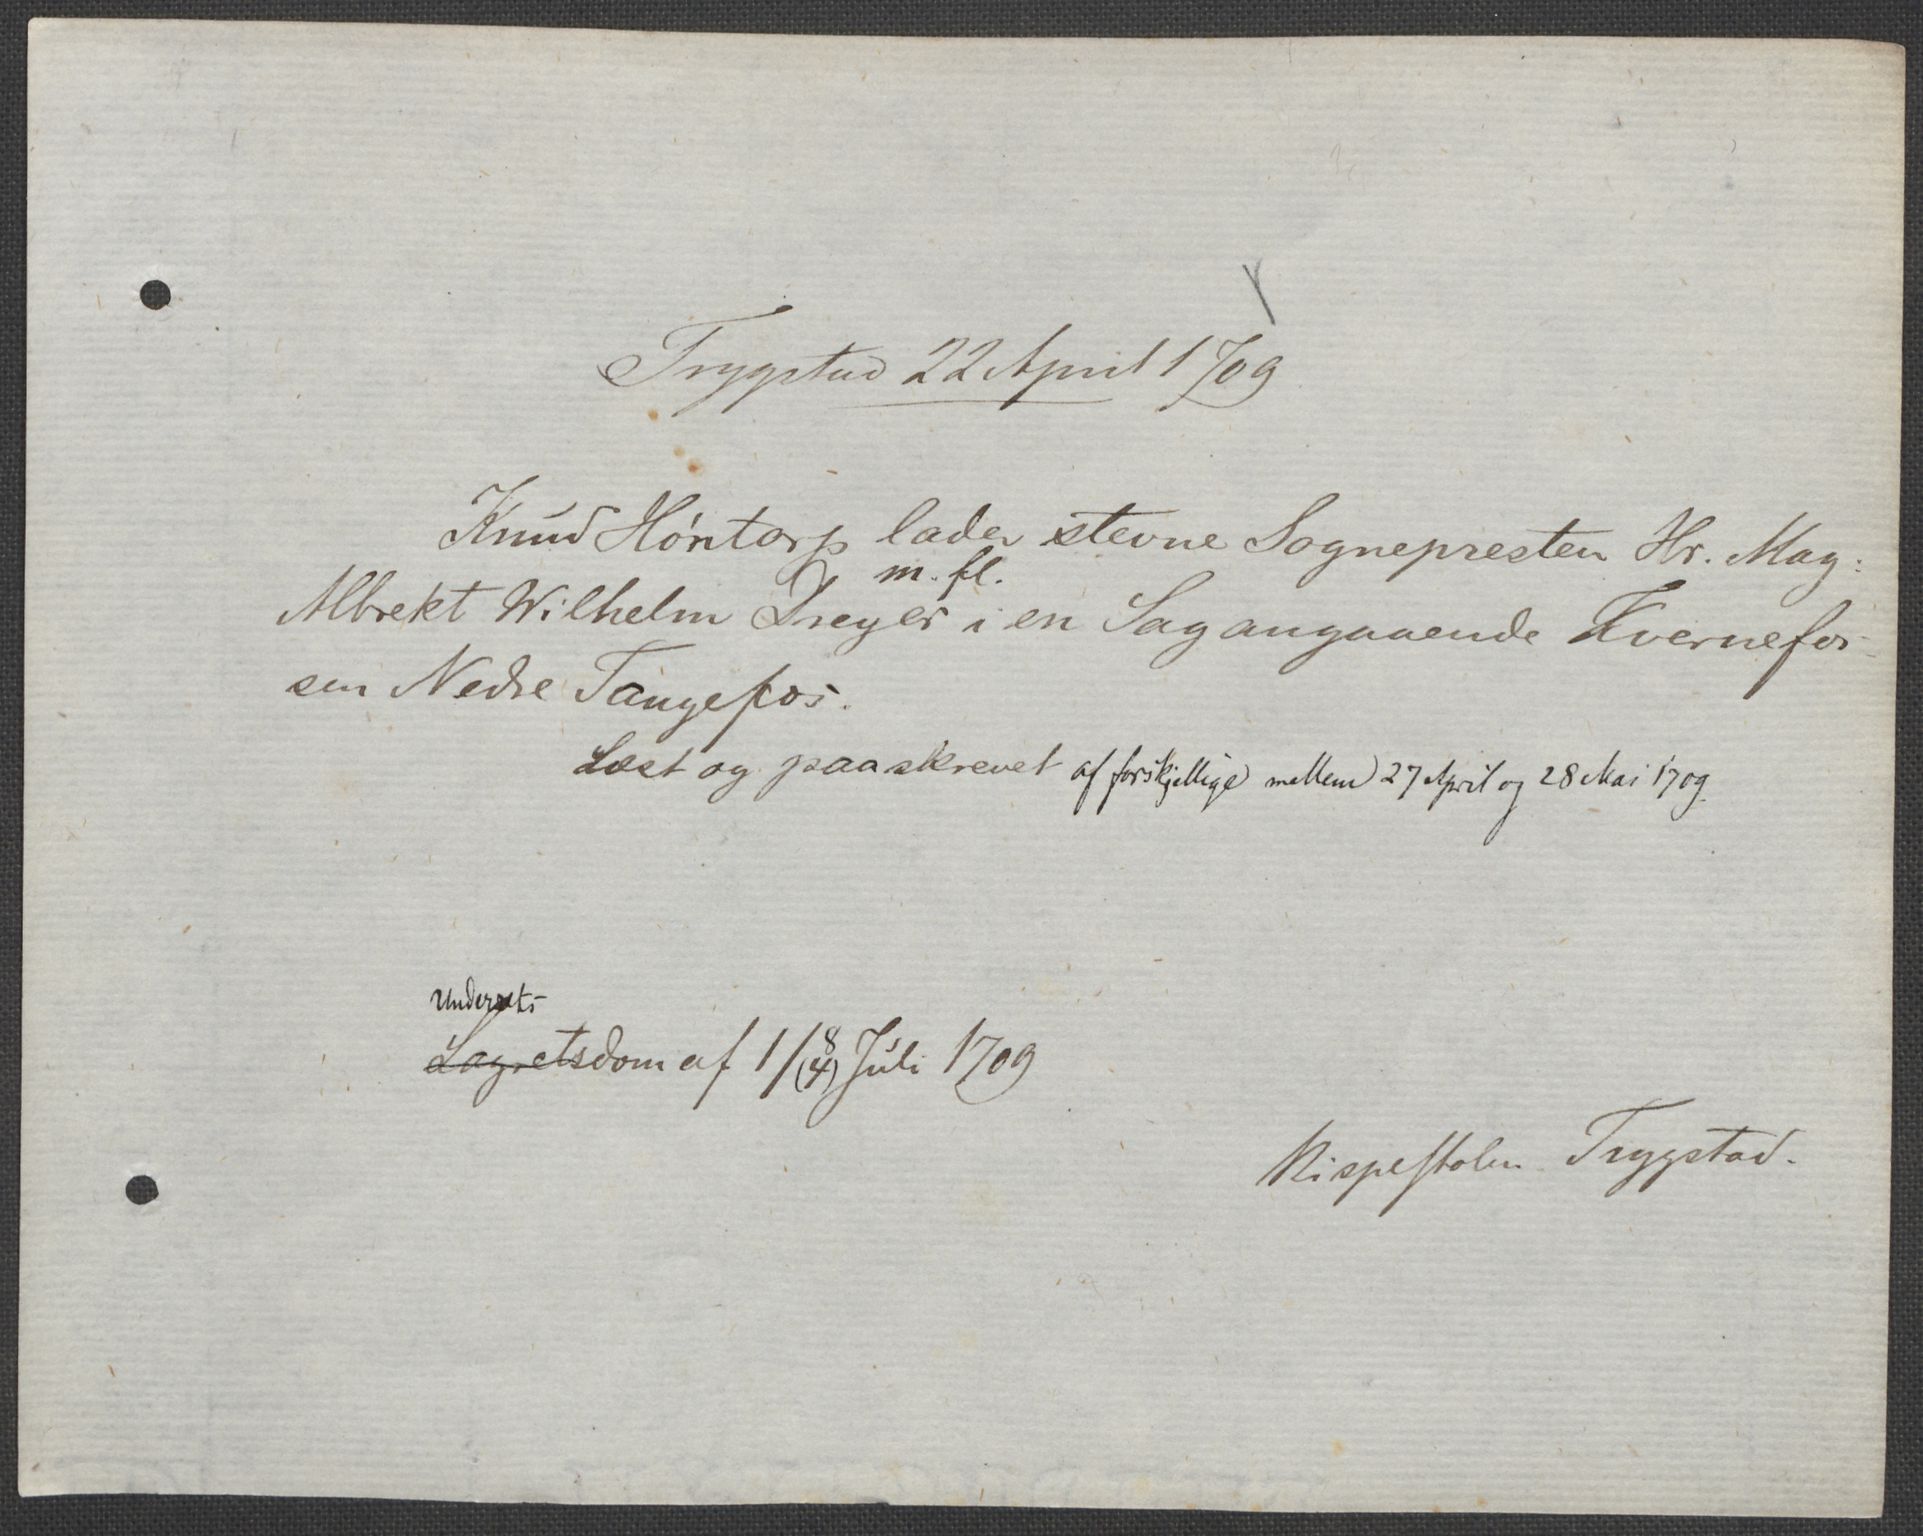 Trygstad 22 April 1709
Knud Höntorp lader stevne Sognepresten Hr. Mag:
m. fl.
Albrekt Wilhelm Dreyer i en Sag angaaende Kvernefos-
sen Nedre Tangefos.
Læst og paaskrevet af forskjellige mellem 27 April og 28 Mai 1709
Underrets-
Lagretsdom af 1/8 (4) Juli 1709
Rispestolen Trygstad.